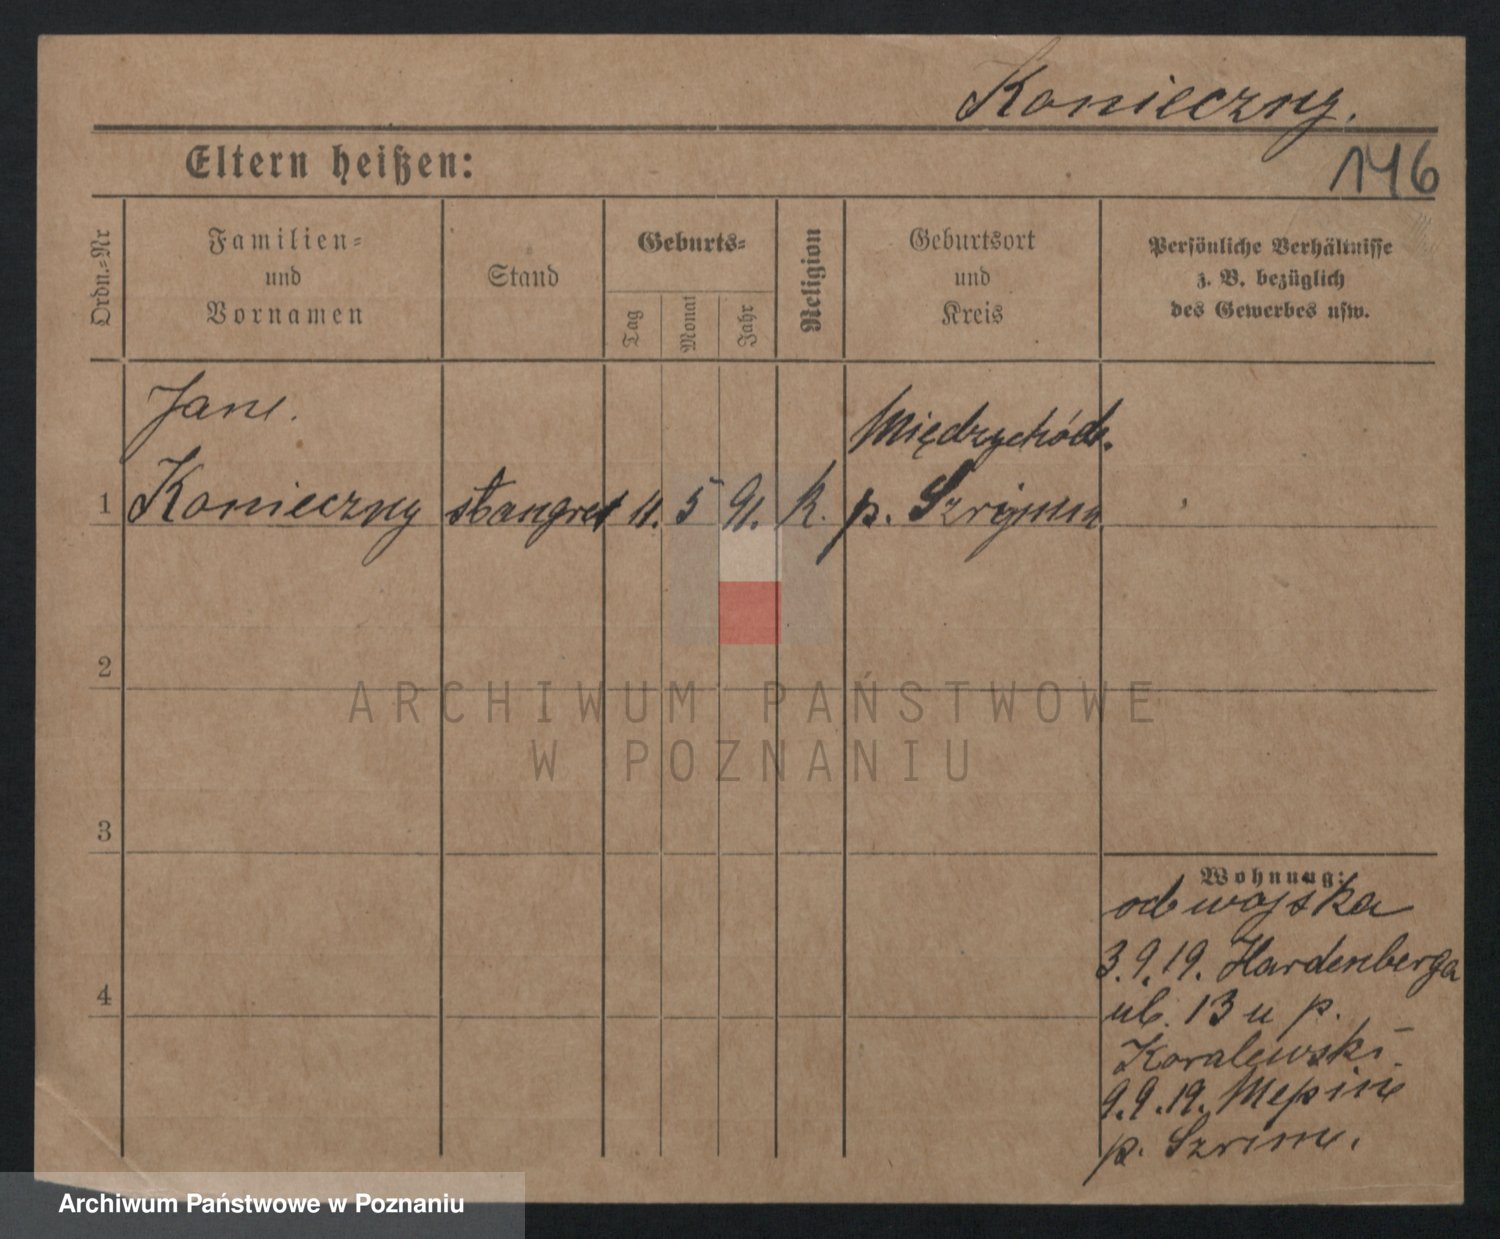 Konieczny.
Eltern heißen:
146
Ordn.-Nr
Familien-
und
Vornamen
Stand
Geburts-
Tag
Monat
Jahr
Religion
Geburtsort
und
Kreis
Persönliche Verhältnisse
z. B. bezüglich
des Gewerbes usw.
Jan.
Międzychód.
1
Konieczny stangret 11. 5 91. k. p.
2
ARCHIWUM PAŃSTWOWE
W POZNANIU
3
Wohnung:
od wojska
3.9.19. Hardenberga
ul. 13 u p.
Koralewski.
4
9.9.19.
p. Szrim.
Archiwum Państwowe w Poznaniu